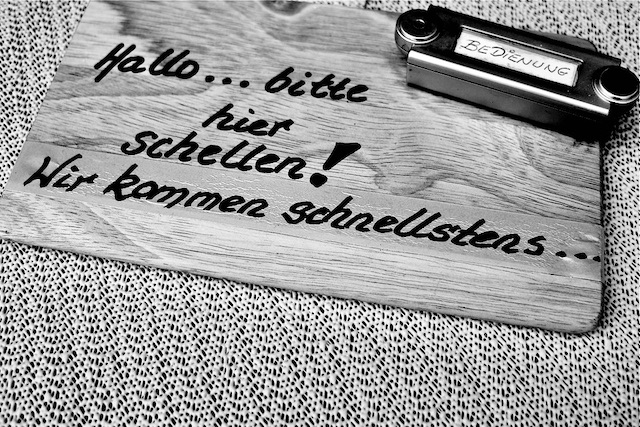 BEDIENUNG
Hallo... bitte
hier
schellen!
Wir kommen schnellstens...